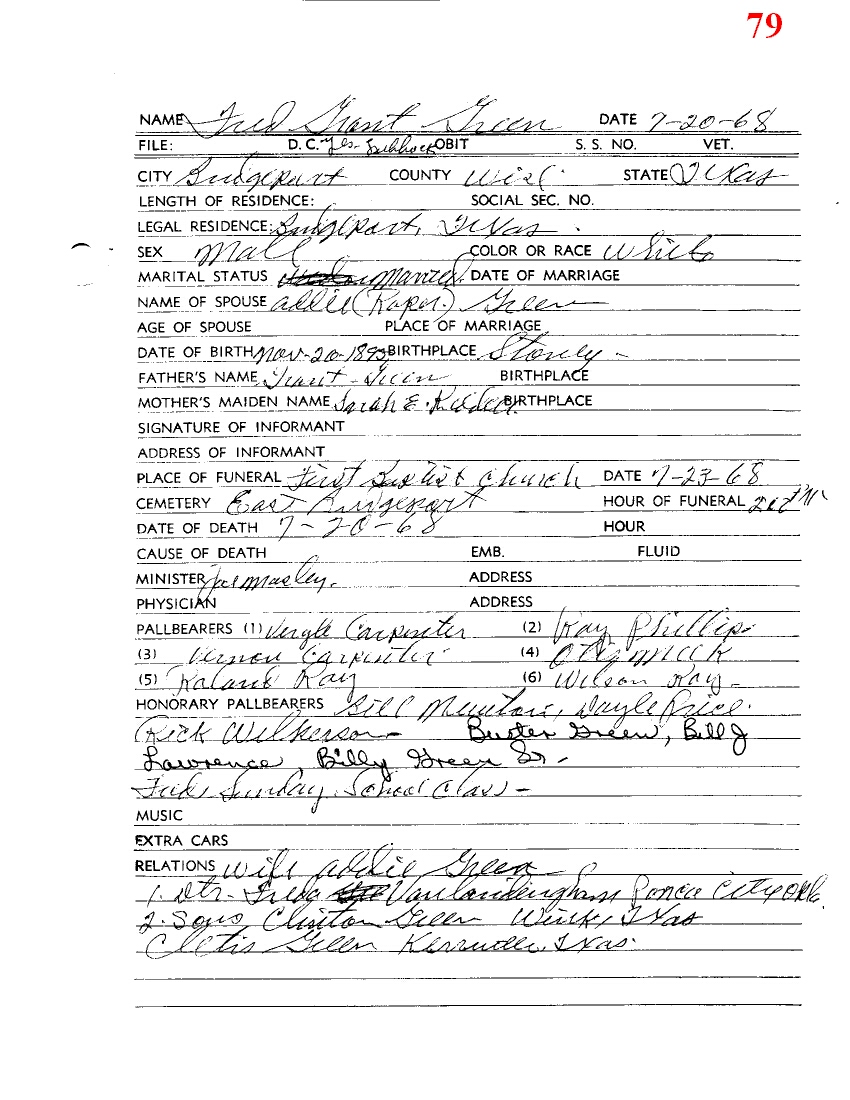 79
NAME Fred Grant Green DATE 7-20-68
FILE: D.C. Yes- Lubbock OBIT S. S. NO. VET.
CITY Bridgeport COUNTY Wise STATE Texas
LENGTH OF RESIDENCE: SOCIAL SEC. NO.
LEGAL RESIDENCE: Bridgeport, Texas
SEX Male COLOR OR RACE White
MARITAL STATUS Married DATE OF MARRIAGE
NAME OF SPOUSE Addie (Roper) Green
AGE OF SPOUSE PLACE OF MARRIAGE
DATE OF BIRTH Nov-20-1893 BIRTHPLACE
FATHER'S NAME Grant-Green BIRTHPLACE
MOTHER'S MAIDEN NAME Sarah E. BIRTHPLACE
SIGNATURE OF INFORMANT
ADDRESS OF INFORMANT
PLACE OF FUNERAL First Baptist Church DATE 7-23-68
CEMETERY East Bridgeport HOUR OF FUNERAL
DATE OF DEATH 7-20-68 HOUR
CAUSE OF DEATH EMB. FLUID
MINISTER Joe Mosley. ADDRESS
PHYSICIAN ADDRESS
PALLBEARERS (1) Vergle Carpenter (2) Ray Phillips
(3) Vernon Carpenter (4) Otis Meek
(5) Roland Ray (6) Wilson Ray-
HONORARY PALLBEARERS Bill Doyle Price.
Rick Wilkerson- Buster Green, Bill J
Lawrence, Billy Green Sr-
Freds Sunday School Class-
MUSIC
EXTRA CARS
RELATIONS Wife Addie Green
1. Dtr- Freda Vanlandingham Ponca City Okla.
2. Sons, Clinton Green Wink, Texas
Cletis Green Kerrville, Texas.